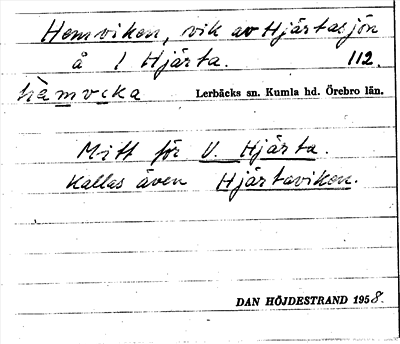 Hemviken, vik av Hjärtasjön
å 1 Hjärta. 112.
hèmvika Lerbäcks sn. Kumla hd. Örebro län.
Mitt för V. Hjärta.
Kallas även Hjärtaviken.
DAN HÖJDESTRAND 1958.